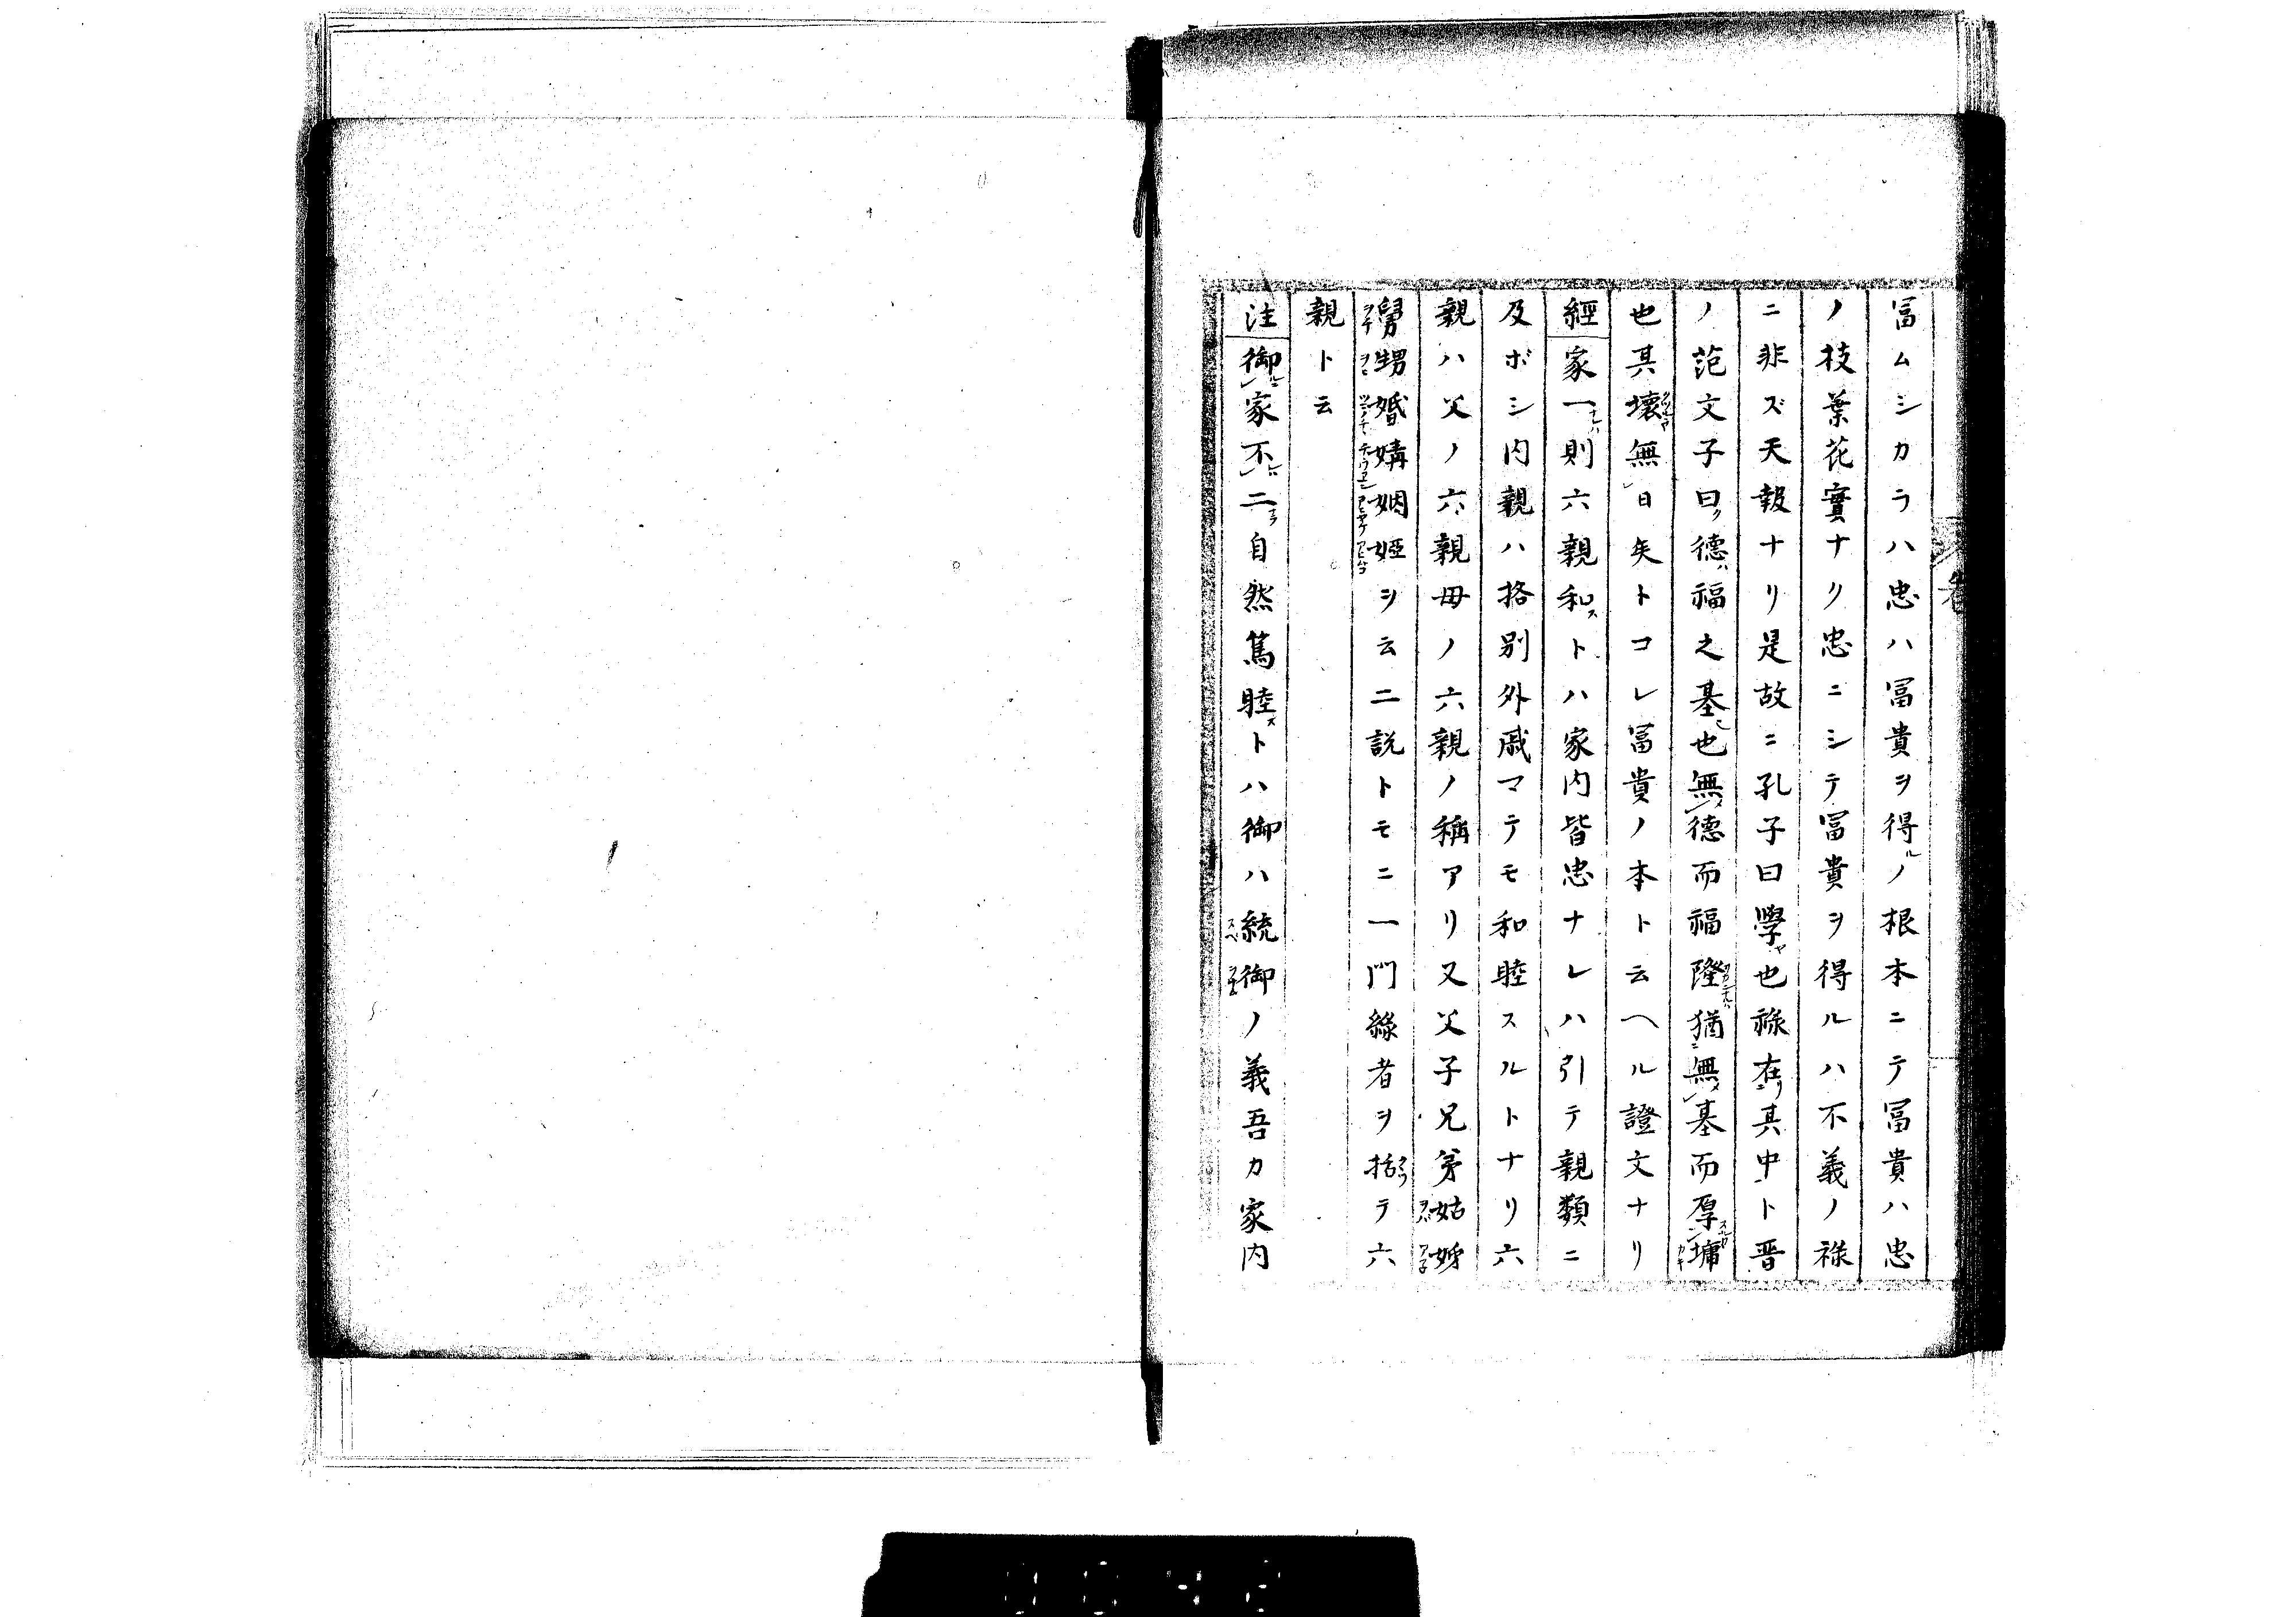 冨ムシカラハ忠ハ冨貴ヲ得ルノ根本ニテ冨貴ハ忠
ノ枝葉花實ナリ忠ニシテ冨貴ヲ得ルハ不義ノ祿
ニ非ズ天報ナリ是故ニ孔子曰學ヤ也祿在リ其中ト晋
ノ范文子曰ク德ハ福之基也無德而福隆猶無基而厚墉
也其壞無日矣トコレ冨貴ノ本ト云ヘル證文ナリ
經家一ナレハ則六親和ストハ家内皆忠ナレハ引テ親類ニ
及ボシ内親ハ格別外戚マテモ和睦スルトナリ六
親ハ父ノ六親母ノ六親ノ稱アリ又父子兄弟姑姊
舅甥婚媾姻婭ヲ云二説トモニ一門緣者ヲ括テ六
親ト云
注御家不二自然篤睦ストハ御ハ統御ノ義吾カ家内